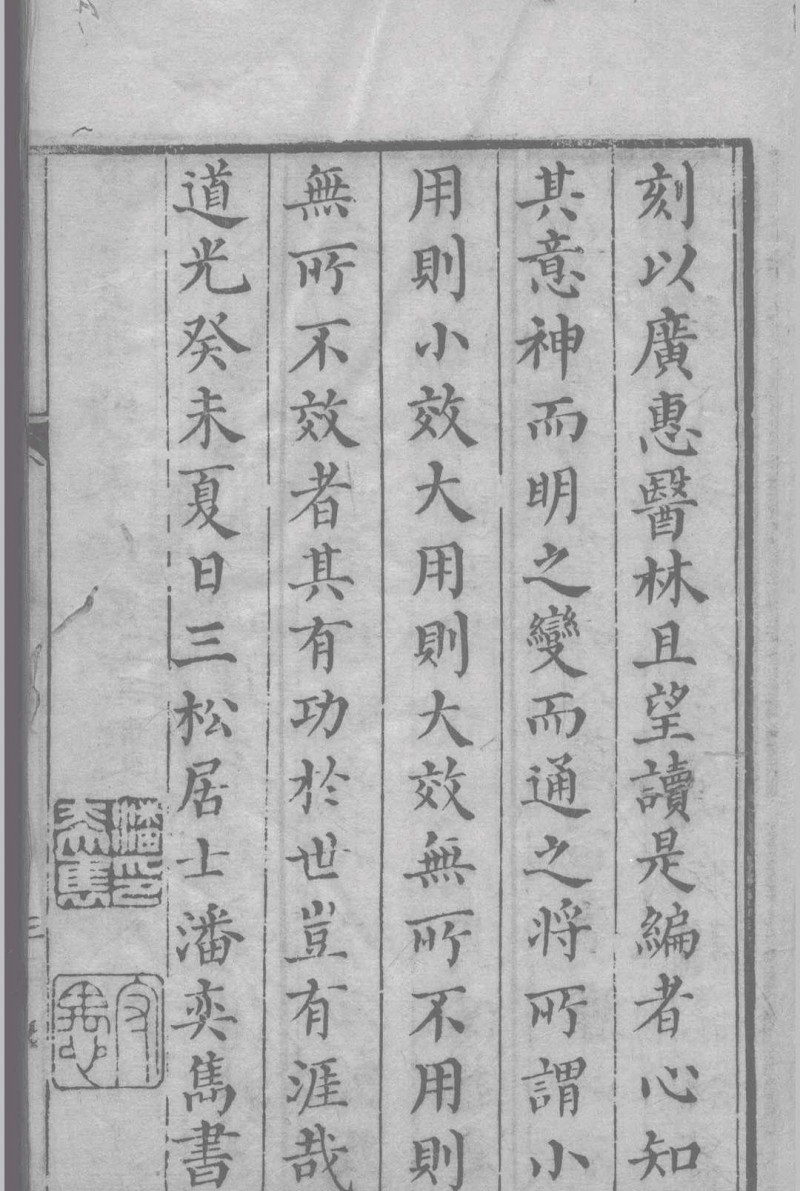 刻以廣惠醫林且望讀是編者心知
其意神而明之變而通之将所謂小
用則小效大用則大效無所不用則
無所不效者其有功於世豈有涯哉
道光癸未夏日三松居士潘奕雋書